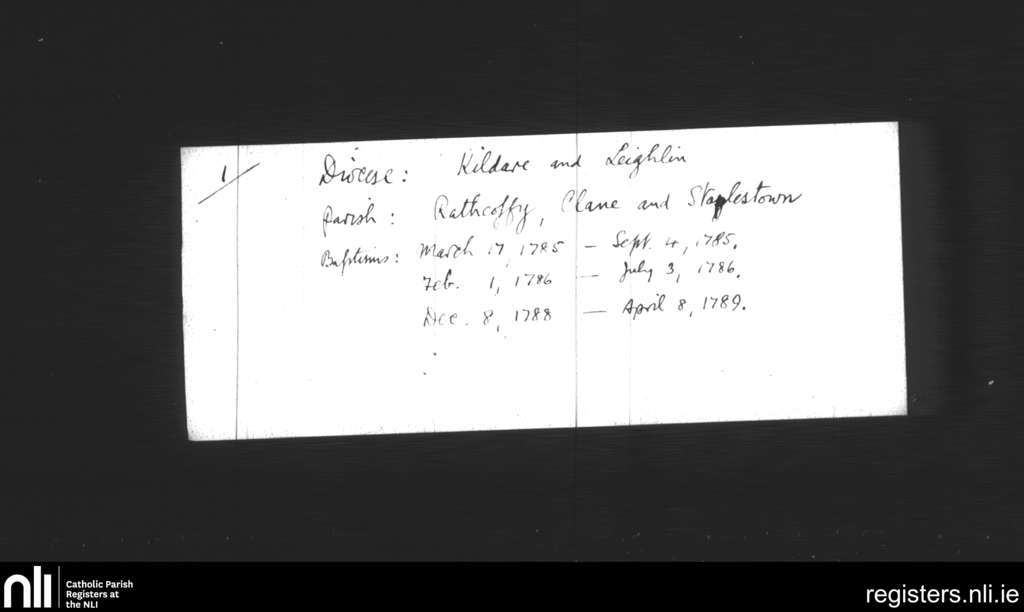 1/
Diocese: Kildare and Leighlin
Parish: Rathcoffy, Clane and Staplestown
Baptisms: March 17, 1785 — Sept. 4, 1785.
Feb. 1, 1786 — July 3, 1786.
Dec. 8, 1788 — April 8, 1789.
nli
Catholic Parish
Registers at
the NLI
registers.nli.ie